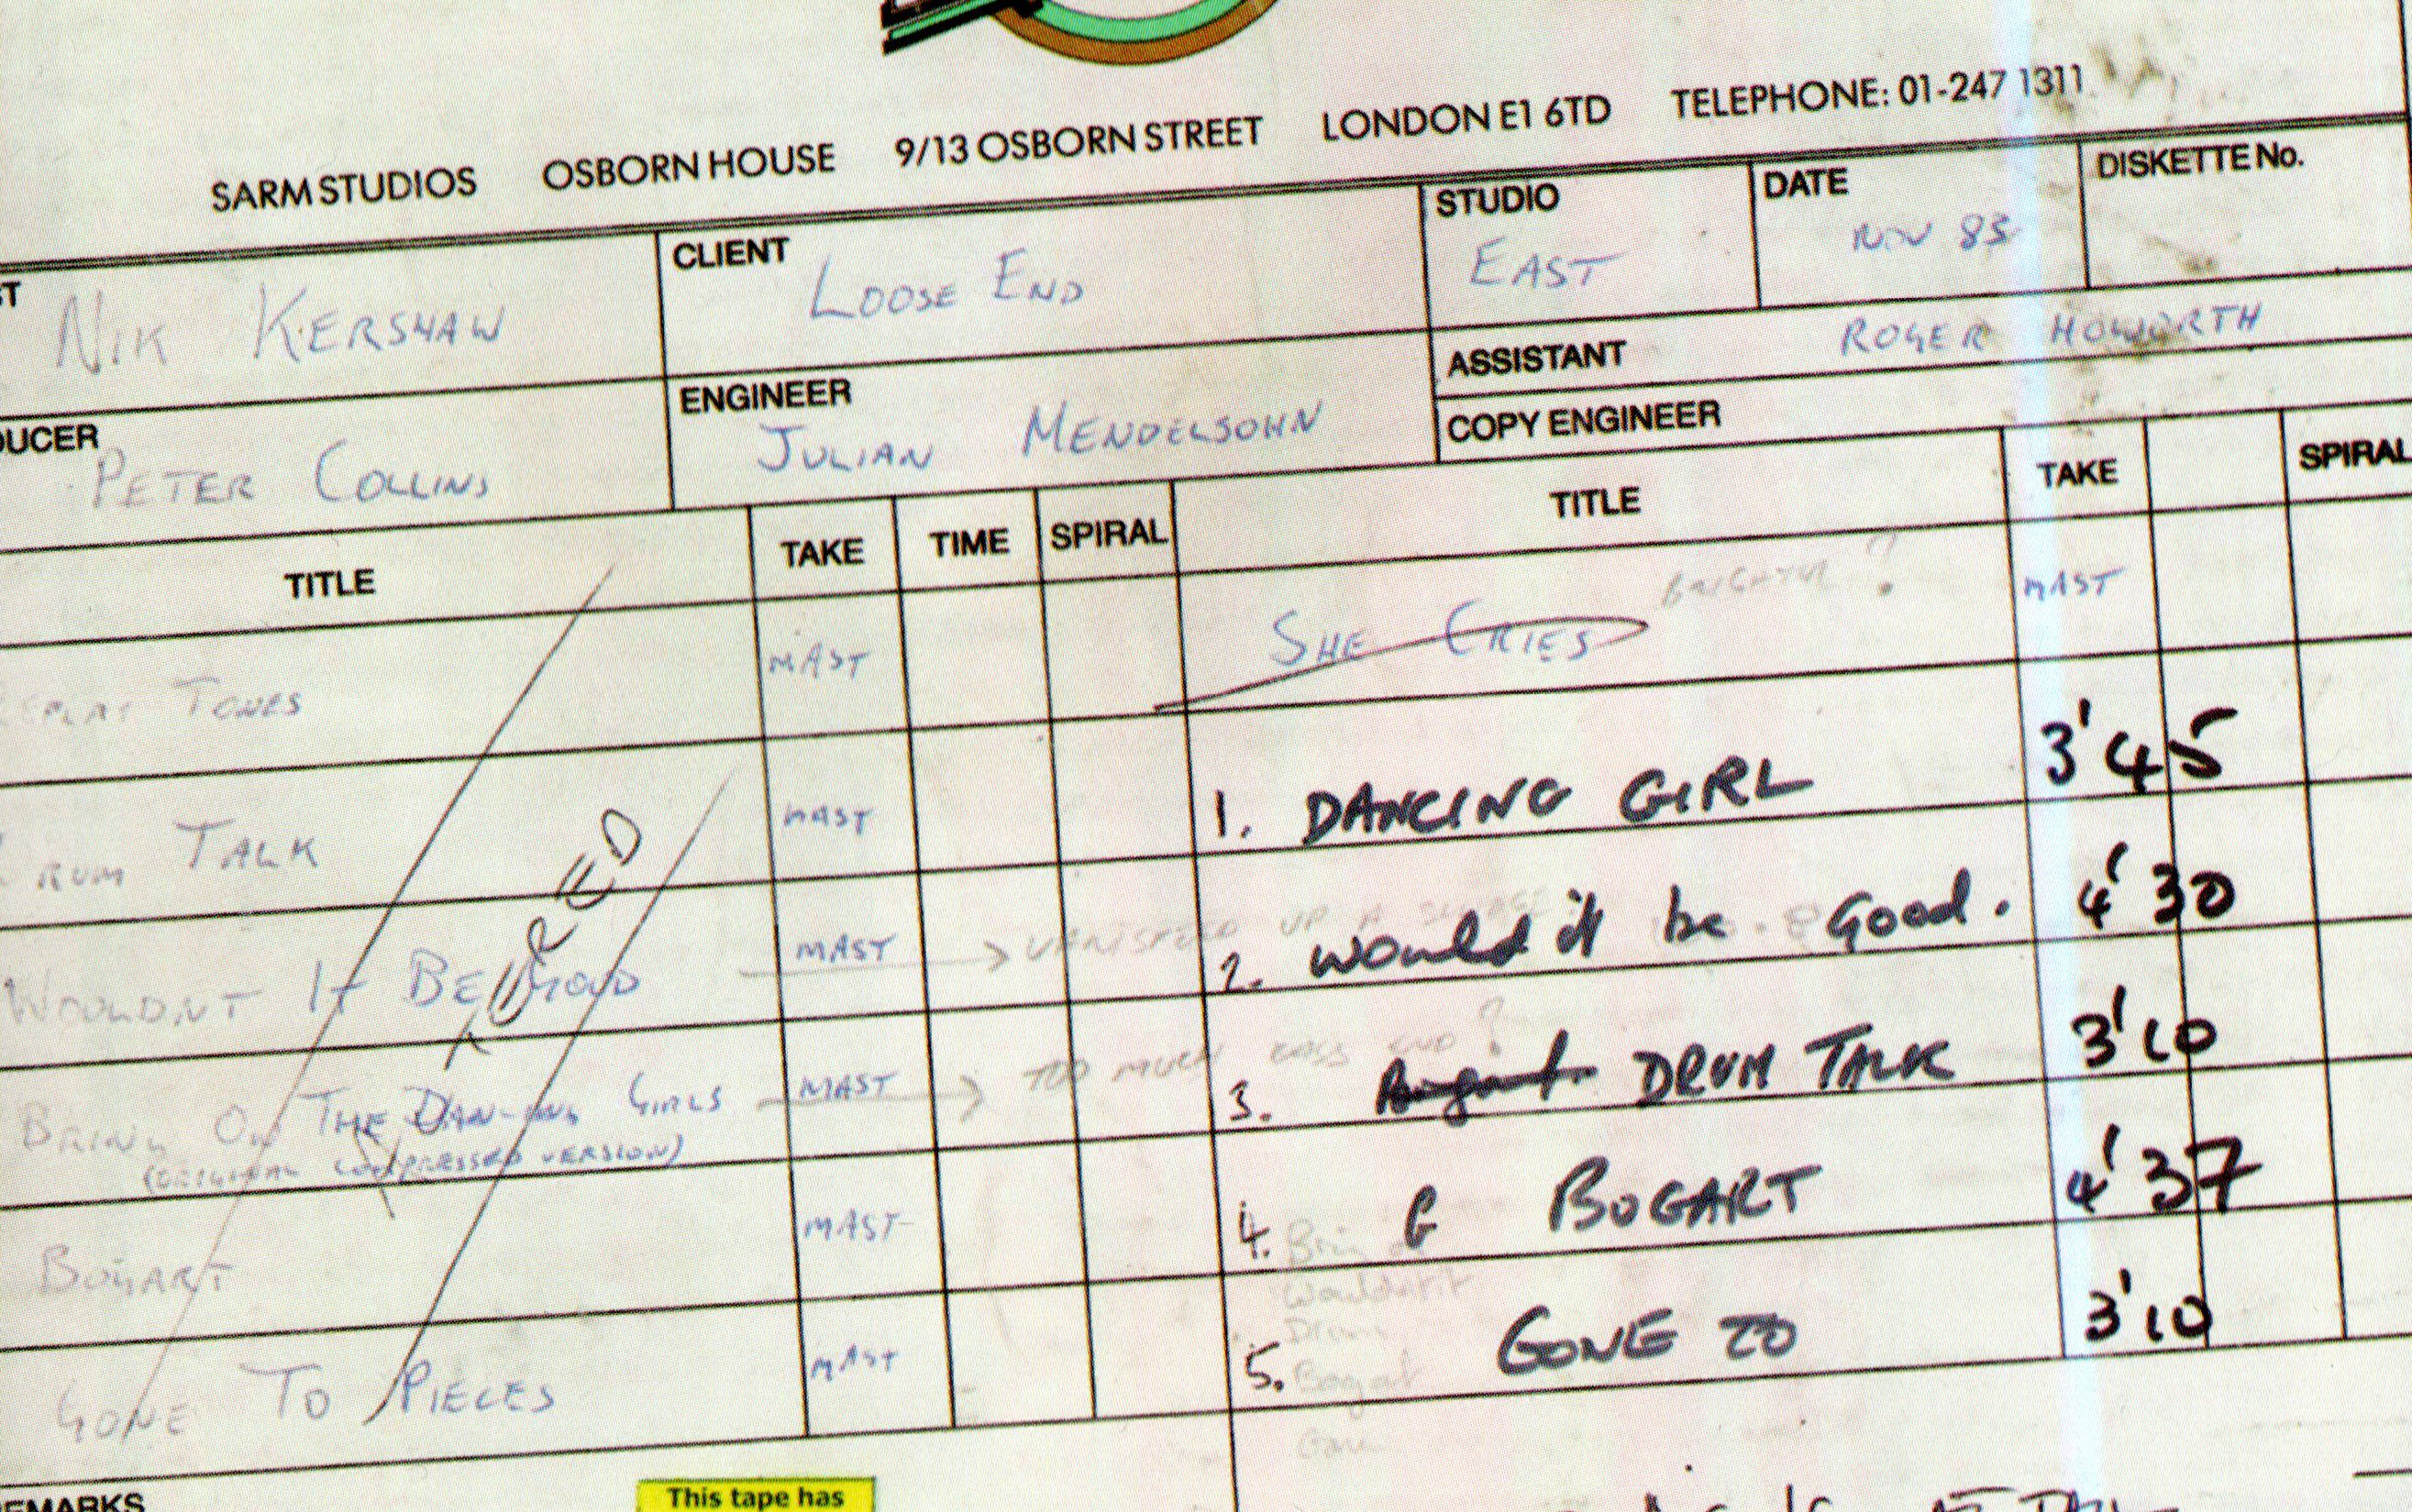 SARM STUDIOS OSBORN HOUSE 9/13 OSBORN STREET LONDON E1 6TD TELEPHONE: 01-247 1311
NIK KERSHAW
CLIENT
LOOSE END
STUDIO
EAST
DATE
NOV 83
DISKETTE No.
PETER COLLINS
ENGINEER
JULIAN MENDELSOHN
ASSISTANT ROGER HOWORTH
COPY ENGINEER
TITLE TAKE TIME SPIRAL TITLE TAKE SPIRAL
TONES MAST SHE CRIES ? MAST
TALK MAST 1. DANCING GIRL 3'45
WOULDNT IT BE GOOD MAST → VARISPEED UP A 2. would it be Good. 4'30
BRING ON THE DANCING GIRLS MAST → TOO MUCH END ? 3. Bogart DRUM TALK 3'10
(ORIGINAL COMPRESSED VERSION)
BOGART MAST 4. BOGART 4'37
GONE TO PIECES MAST 5. GONE TO 3'10
Wouldnt it
Drum
Bogart
Gone
This tape has